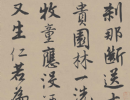 刹那断送十
貴園林一洗
牧童應没
又生仁若為